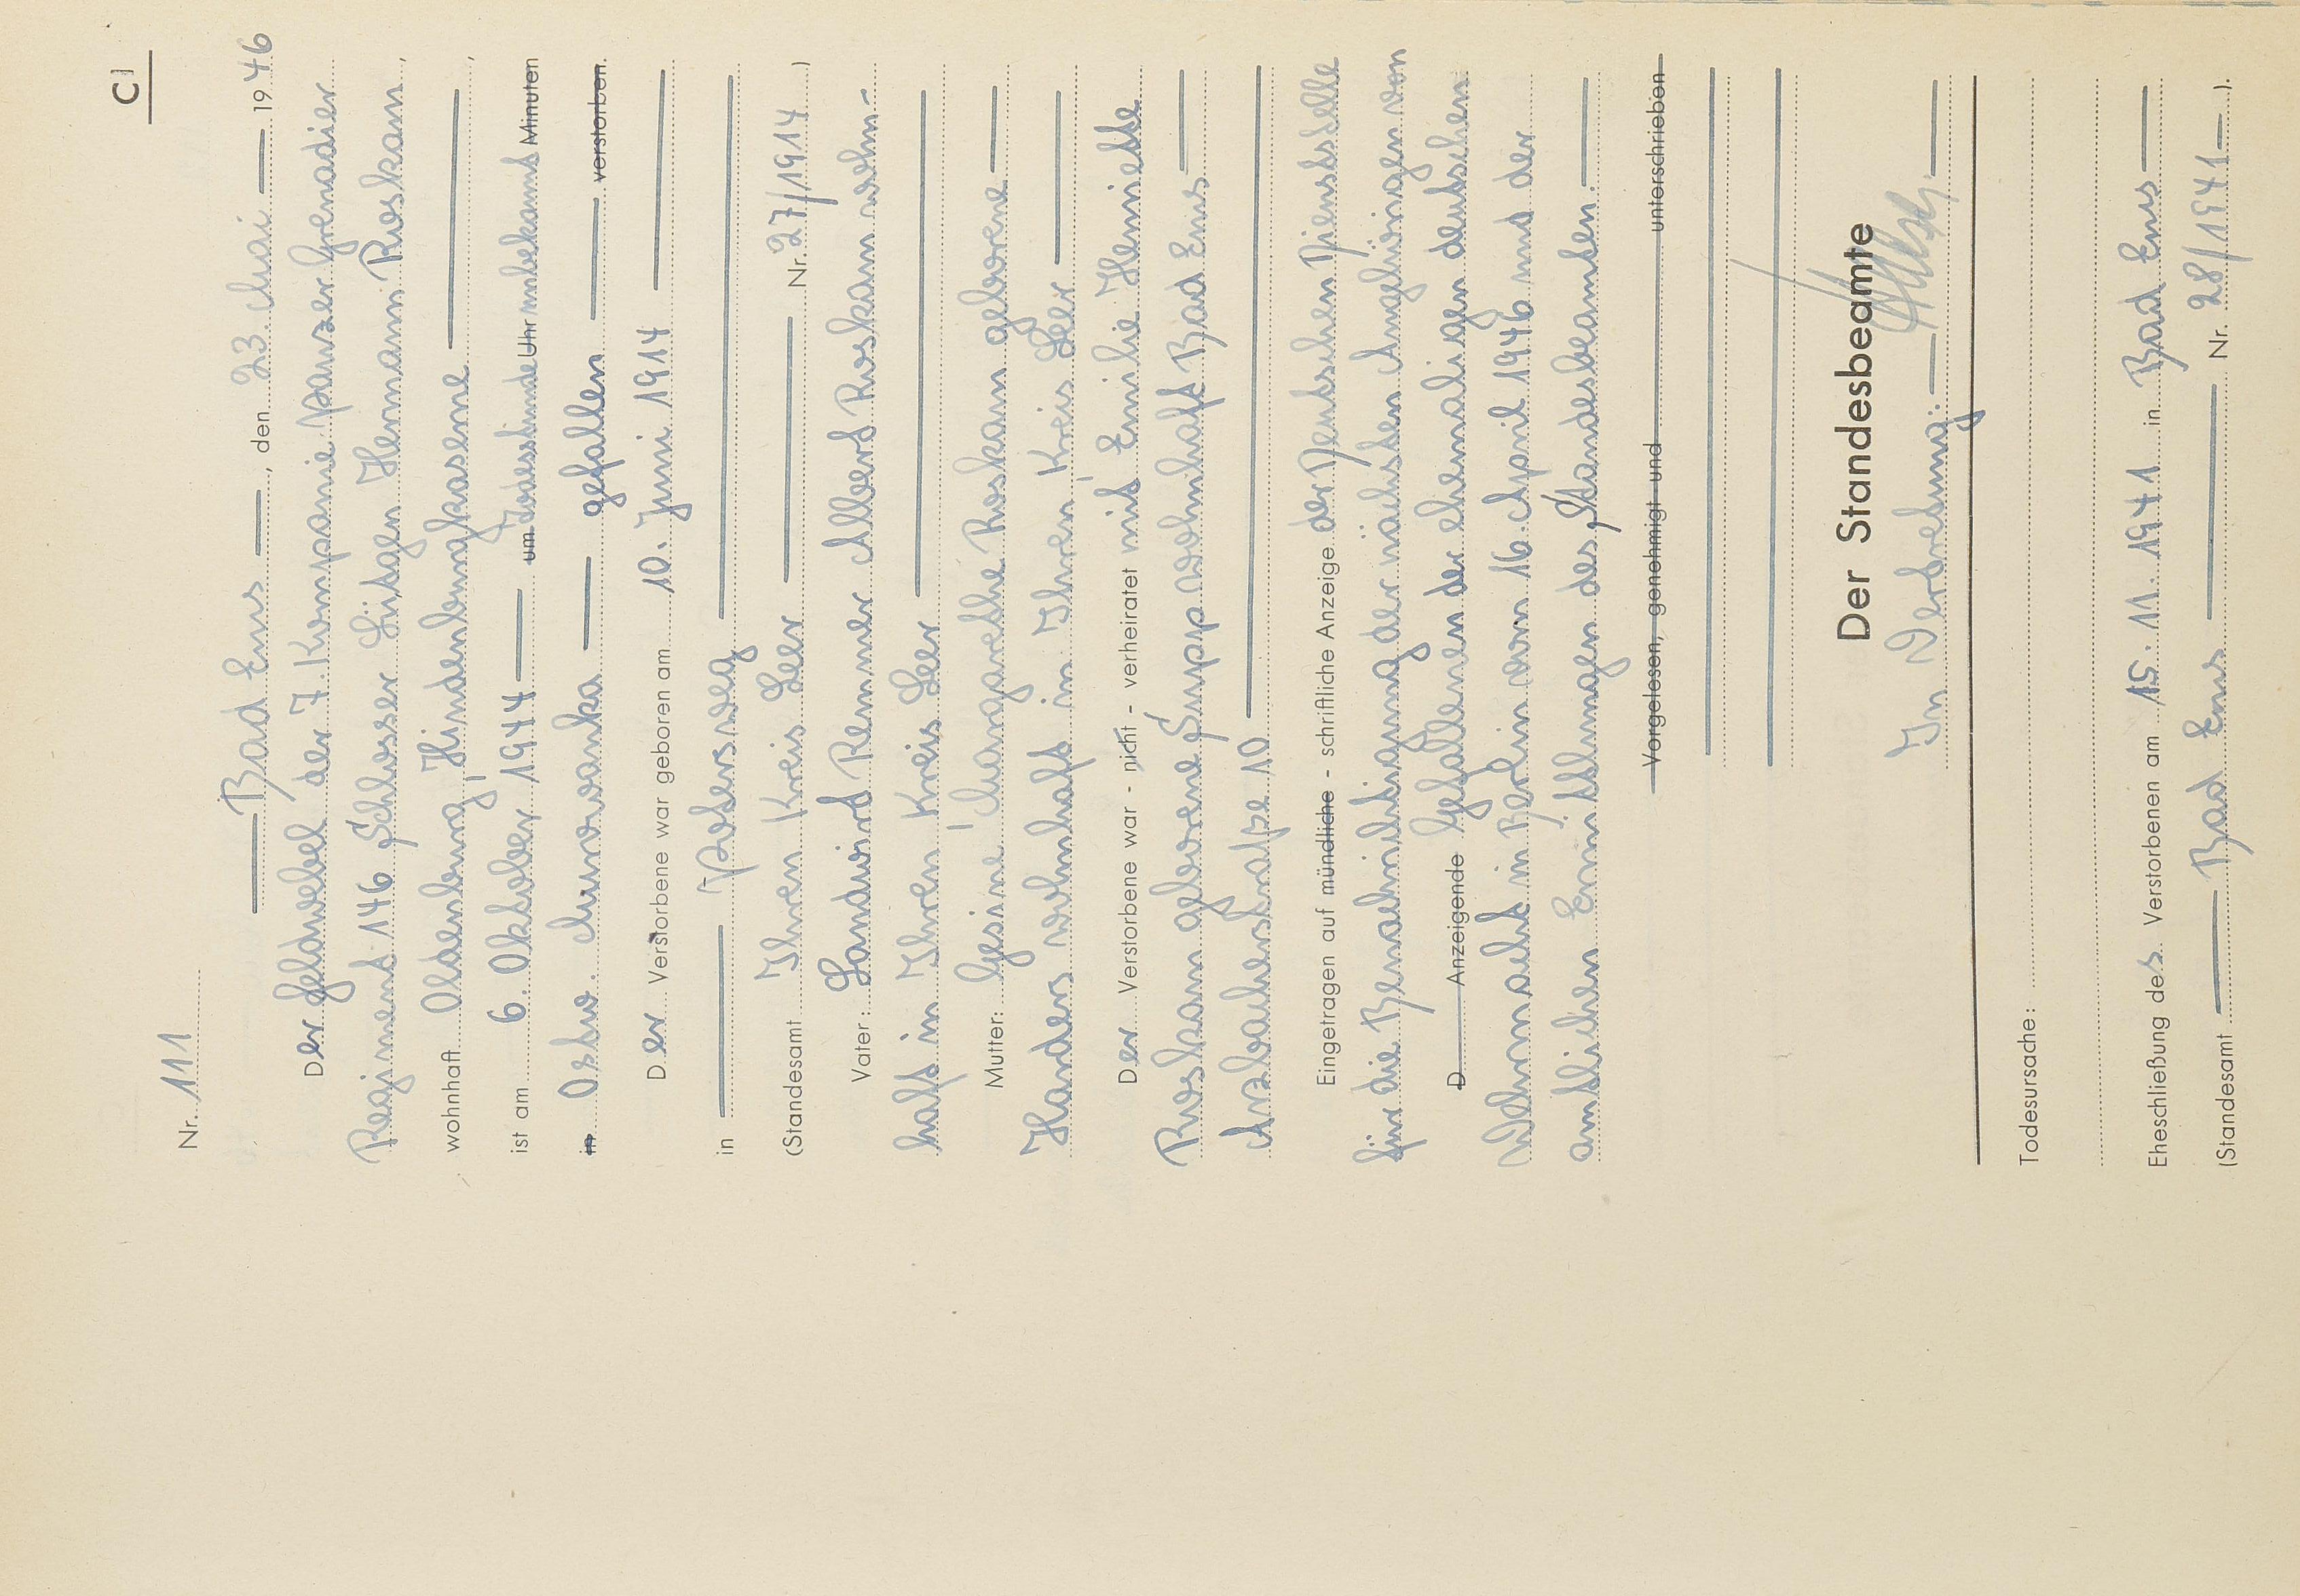 C1
Nr. 111
Bad Ems, den 23. Mai 1946
Der Feldwebel der 7. Kompanie Panzer Grenadier
Regiment 146 Schlosser Lüitgen Hermann Roskam,
wohnhaft Oldenburg, Hindenburgkaserne,
ist am 6. Oktober 1944 um Todesstunde Uhr unbekannt Minuten
in Ostw. Murowanka gefallen verstorben.
Der Verstorbene war geboren am 10. Juni 1914
in Potersweg
(Standesamt Ihren Kreis Leer Nr. 27/1914)
Vater: Landwirt Remmer Albert Roskam wohn-
haft in Ihren Kreis Leer
Mutter: Gesine Margarethe Roskam geborene
Harders wohnhaft in Ihren, Kreis Leer
Der Verstorbene war - nicht - verheiratet mit Emilie Henriette
Roskam geborene Supp wohnhaft Bad Ems
Arzbacherstraße 10
Eingetragen auf mündliche - schriftliche Anzeige der Deutschen Dienststelle
für die Benachrichtigung der nächsten Angehörigen von
D Anzeigende Gefallenen der ehemaligen deutschen
Wehrmacht in Berlin vom 16. April 1946 und der
amtlichen Ermittlungen des Standesbeamten.
Vorgelesen, genehmigt und unterschrieben
Der Standesbeamte
In Vertretung:
Todesursache:
Eheschließung des Verstorbenen am 15. 11. 1941 in Bad Ems
(Standesamt Bad Ems Nr. 28/1941).